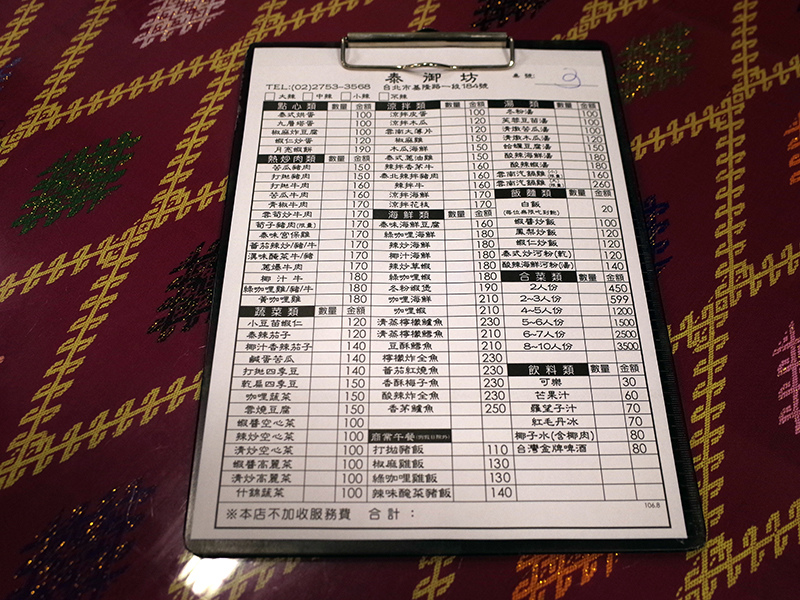 泰御坊 桌號: 3
TEL:(02)2753-3568 台北市基隆路一段184號
□大辣 □中辣 □小辣 □不辣
點心類 數量 金額
泰式烘蛋 100
九層塔蛋 100
椒麻炸豆腐 100
蝦仁炒蛋 120
月亮蝦餅 190
熱炒肉類 數量 金額
苦瓜豬肉 150
打拋豬肉 150
打拋牛肉 160
苦瓜牛肉 160
青椒牛肉 170
雲筍炒牛肉 170
筍子豬肉(限量) 170
泰味宮保雞 170
番茄辣炒/豬/牛 170
滇味醃菜牛/豬 170
蔥爆牛肉 170
椰汁牛 180
綠咖哩雞/豬/牛 180
黃咖哩雞 180
蔬菜類 數量 金額
小豆苗蝦仁 120
泰辣茄子 120
椰汁香辣茄子 140
鹹蛋苦瓜 140
打拋四季豆 140
乾扁四季豆 150
咖哩蔬菜 150
雲燒豆腐 150
蝦醬空心菜 100
辣炒空心菜 100
清炒空心菜 100
蝦醬高麗菜 100
清炒高麗菜 100
什錦蔬菜 100
涼拌類 數量 金額
涼拌皮蛋 100
涼拌木瓜 100
雲南大薄片 120
椒麻雞 140
木瓜海鮮 150
泰式蔥油雞 150
辣拌香茅牛 160
泰北辣拌豬肉 160
辣拌牛 160
涼拌海鮮 170
涼拌花枝 170
海鮮類 數量 金額
泰味海鮮豆腐 160
綠咖哩海鮮 180
辣炒海鮮 180
椰汁海鮮 180
辣炒草蝦 180
綠咖哩蝦 180
冬粉蝦煲 190
咖哩海鮮 210
咖哩蝦 210
清蒸檸檬鱸魚 230
清蒸檸檬鱈魚 210
豆酥鱈魚 210
檸檬炸全魚 230
番茄紅燒魚 230
香酥梅子魚 230
酸辣炸全魚 230
香茅鱸魚 250
商業午餐
打拋豬飯 110
椒麻雞飯 130
綠咖哩雞飯 130
辣味醃菜豬飯 140
湯類 數量 金額
冬粉湯 100
芙蓉豆苗湯 100
清燉苦瓜湯 100
清燉木瓜湯 100
蛤蠣豆腐湯 150
酸辣海鮮湯 180
酸辣蝦湯 180
雲南汽鍋雞 160
雲南汽鍋雞 260
飯麵類 數量 金額
白飯 20
(每位無限吃到飽)
蝦醬炒飯 100
鳳梨炒飯 120
蝦仁炒飯 120
泰式炒河粉(乾) 120
酸辣海鮮河粉(湯) 140
合菜類 數量 金額
2人份 450
2~3人份 599
4~5人份 1200
5~6人份 1500
6~7人份 2500
8~10人份 3500
飲料類 數量 金額
可樂 30
芒果汁 60
羅望子汁 70
紅毛丹冰 70
椰子水(含椰肉) 80
台灣金牌啤酒 80
106.8
※本店不加收服務費 合計: